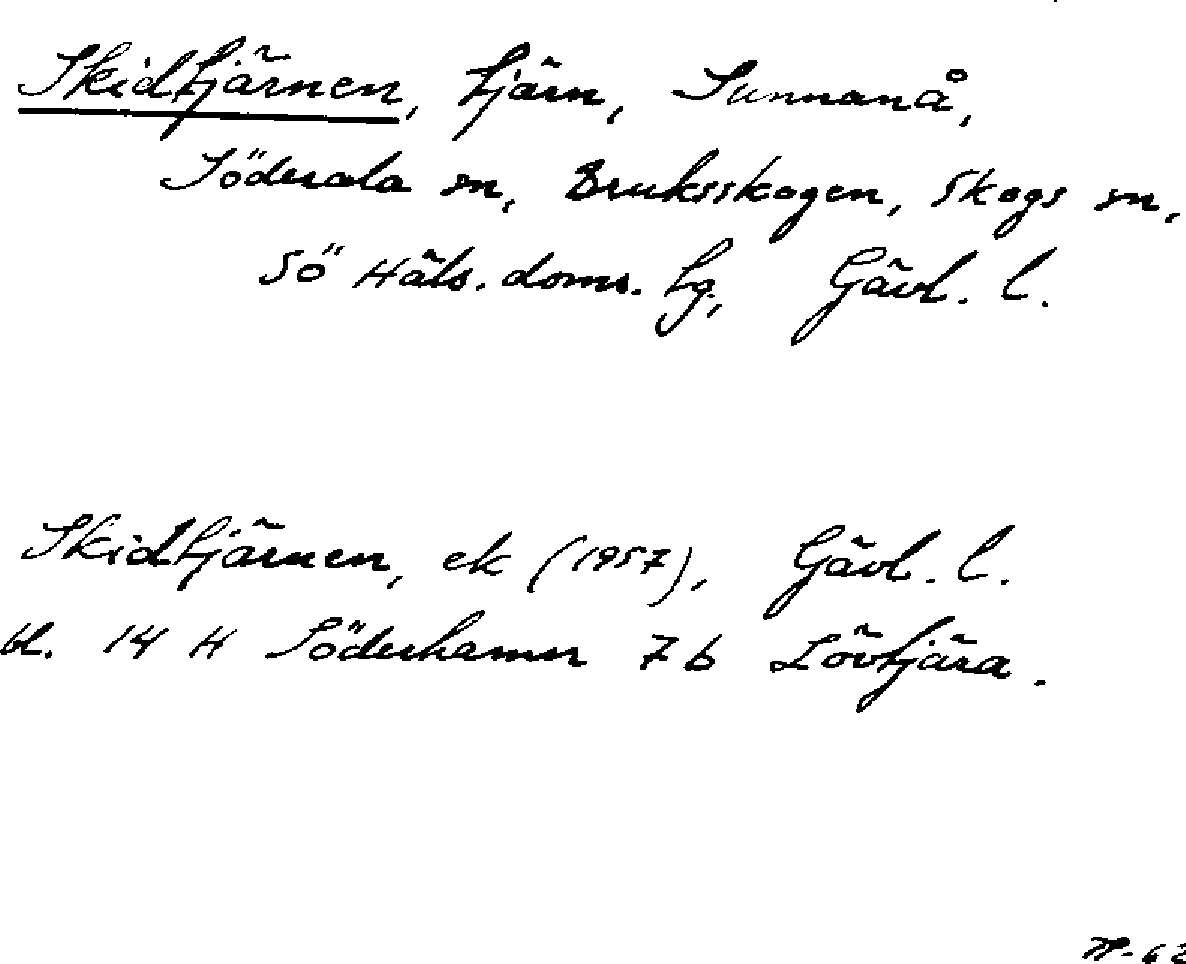 Skidtjärnen, tjärn, Sunnanå,
Söderala sn, Bruksskogen, Skogs sn,
Sö Häls. doms. tg, Gävl. l.
Skidtjärnen, ek (1957), Gävl. l.
bl. 14 H Söderhamn 7 b Lövtjära.